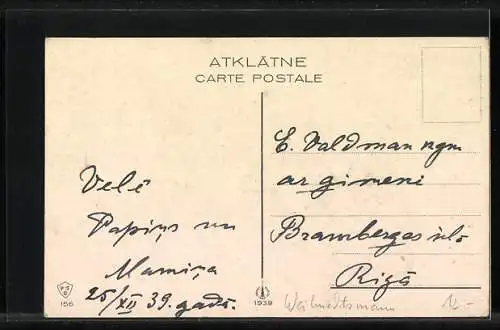 ATKLĀTNE
CARTE POSTALE
Velē
Papiņs un
Mamiņa
25/XII 39. gadā.
E. Valdman kgm
ar gimeni
Brambergas ielā
Rīgā
156
1939
Weihnachtsmann